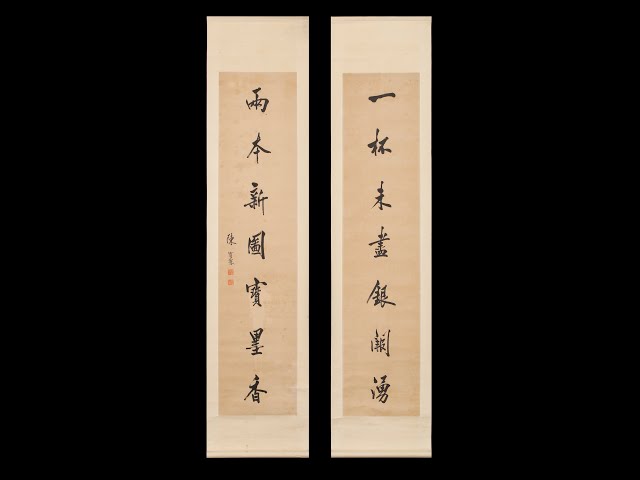 一杯未盡銀闕湧
兩本新圖寶墨香
陳寶琛